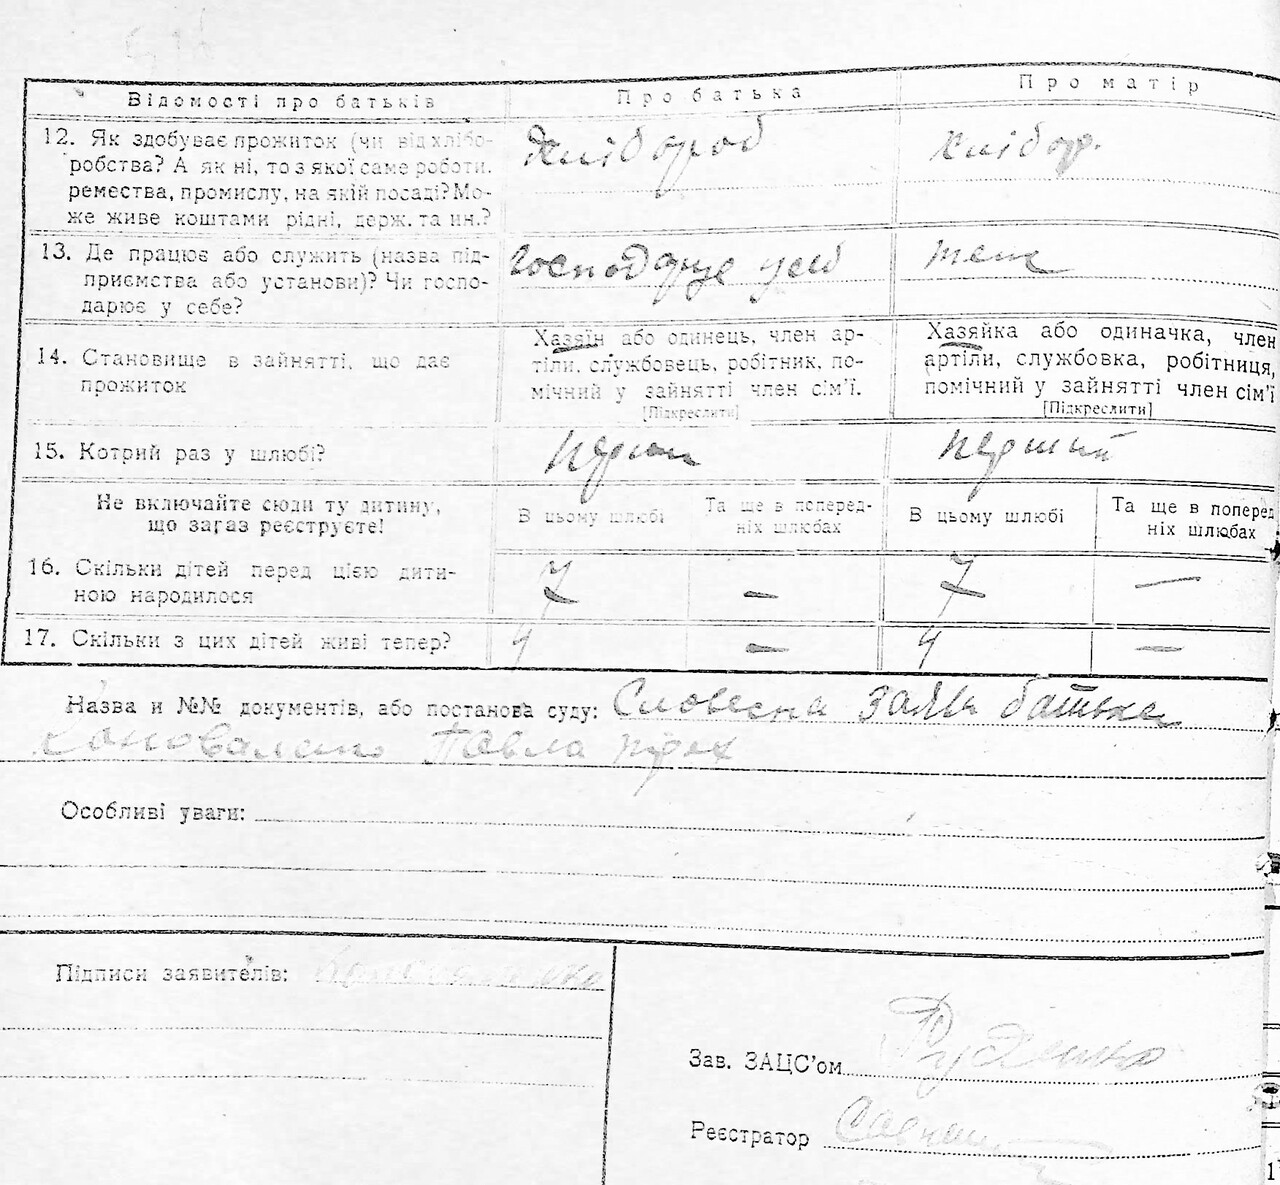 Відомості про батьків Про батька Про матір
12. Як здобуває прожиток (чи від хлібо-
робства? А як ні, то з якої саме роботи,
ремества, промислу, на якій посаді? Мо-
же живе коштами рідні, держ. та ин.?
Хлібороб хлібор.
13. Де працює або служить (назва під-
приємства або установи)? Чи госпо-
дарює у себе?
Господарує у себ теж
14. Становище в зайнятті, що дає
прожиток
Хазяїн або одинець, член ар-
тіли, службовець, робітник, по-
мічний у зайнятті член сім'ї.
[Підкреслити]
Хазяйка або одиначка, член
артіли, службовка, робітниця,
помічний у зайнятті член сім'ї
[Підкреслити]
15. Котрий раз у шлюбі? перший
Не включайте сюди ту дитину,
що зараз реєструєте!
В цьому шлюбі
Та ще в поперед-
ніх шлюбах
В цьому шлюбі
Та ще в поперед
ніх шлюбах
16. Скільки дітей перед цією дити-
ною народилося
7 — 7 —
17. Скільки з цих дітей живі тепер? 4 — 4 —
Назва и №№ документів, або постанова суду: Словесна заява батька
Коноваленко Павла
Особливі уваги:
Підписи заявителів:
Зав. ЗАЦС'ом Руденко
Реєстратор